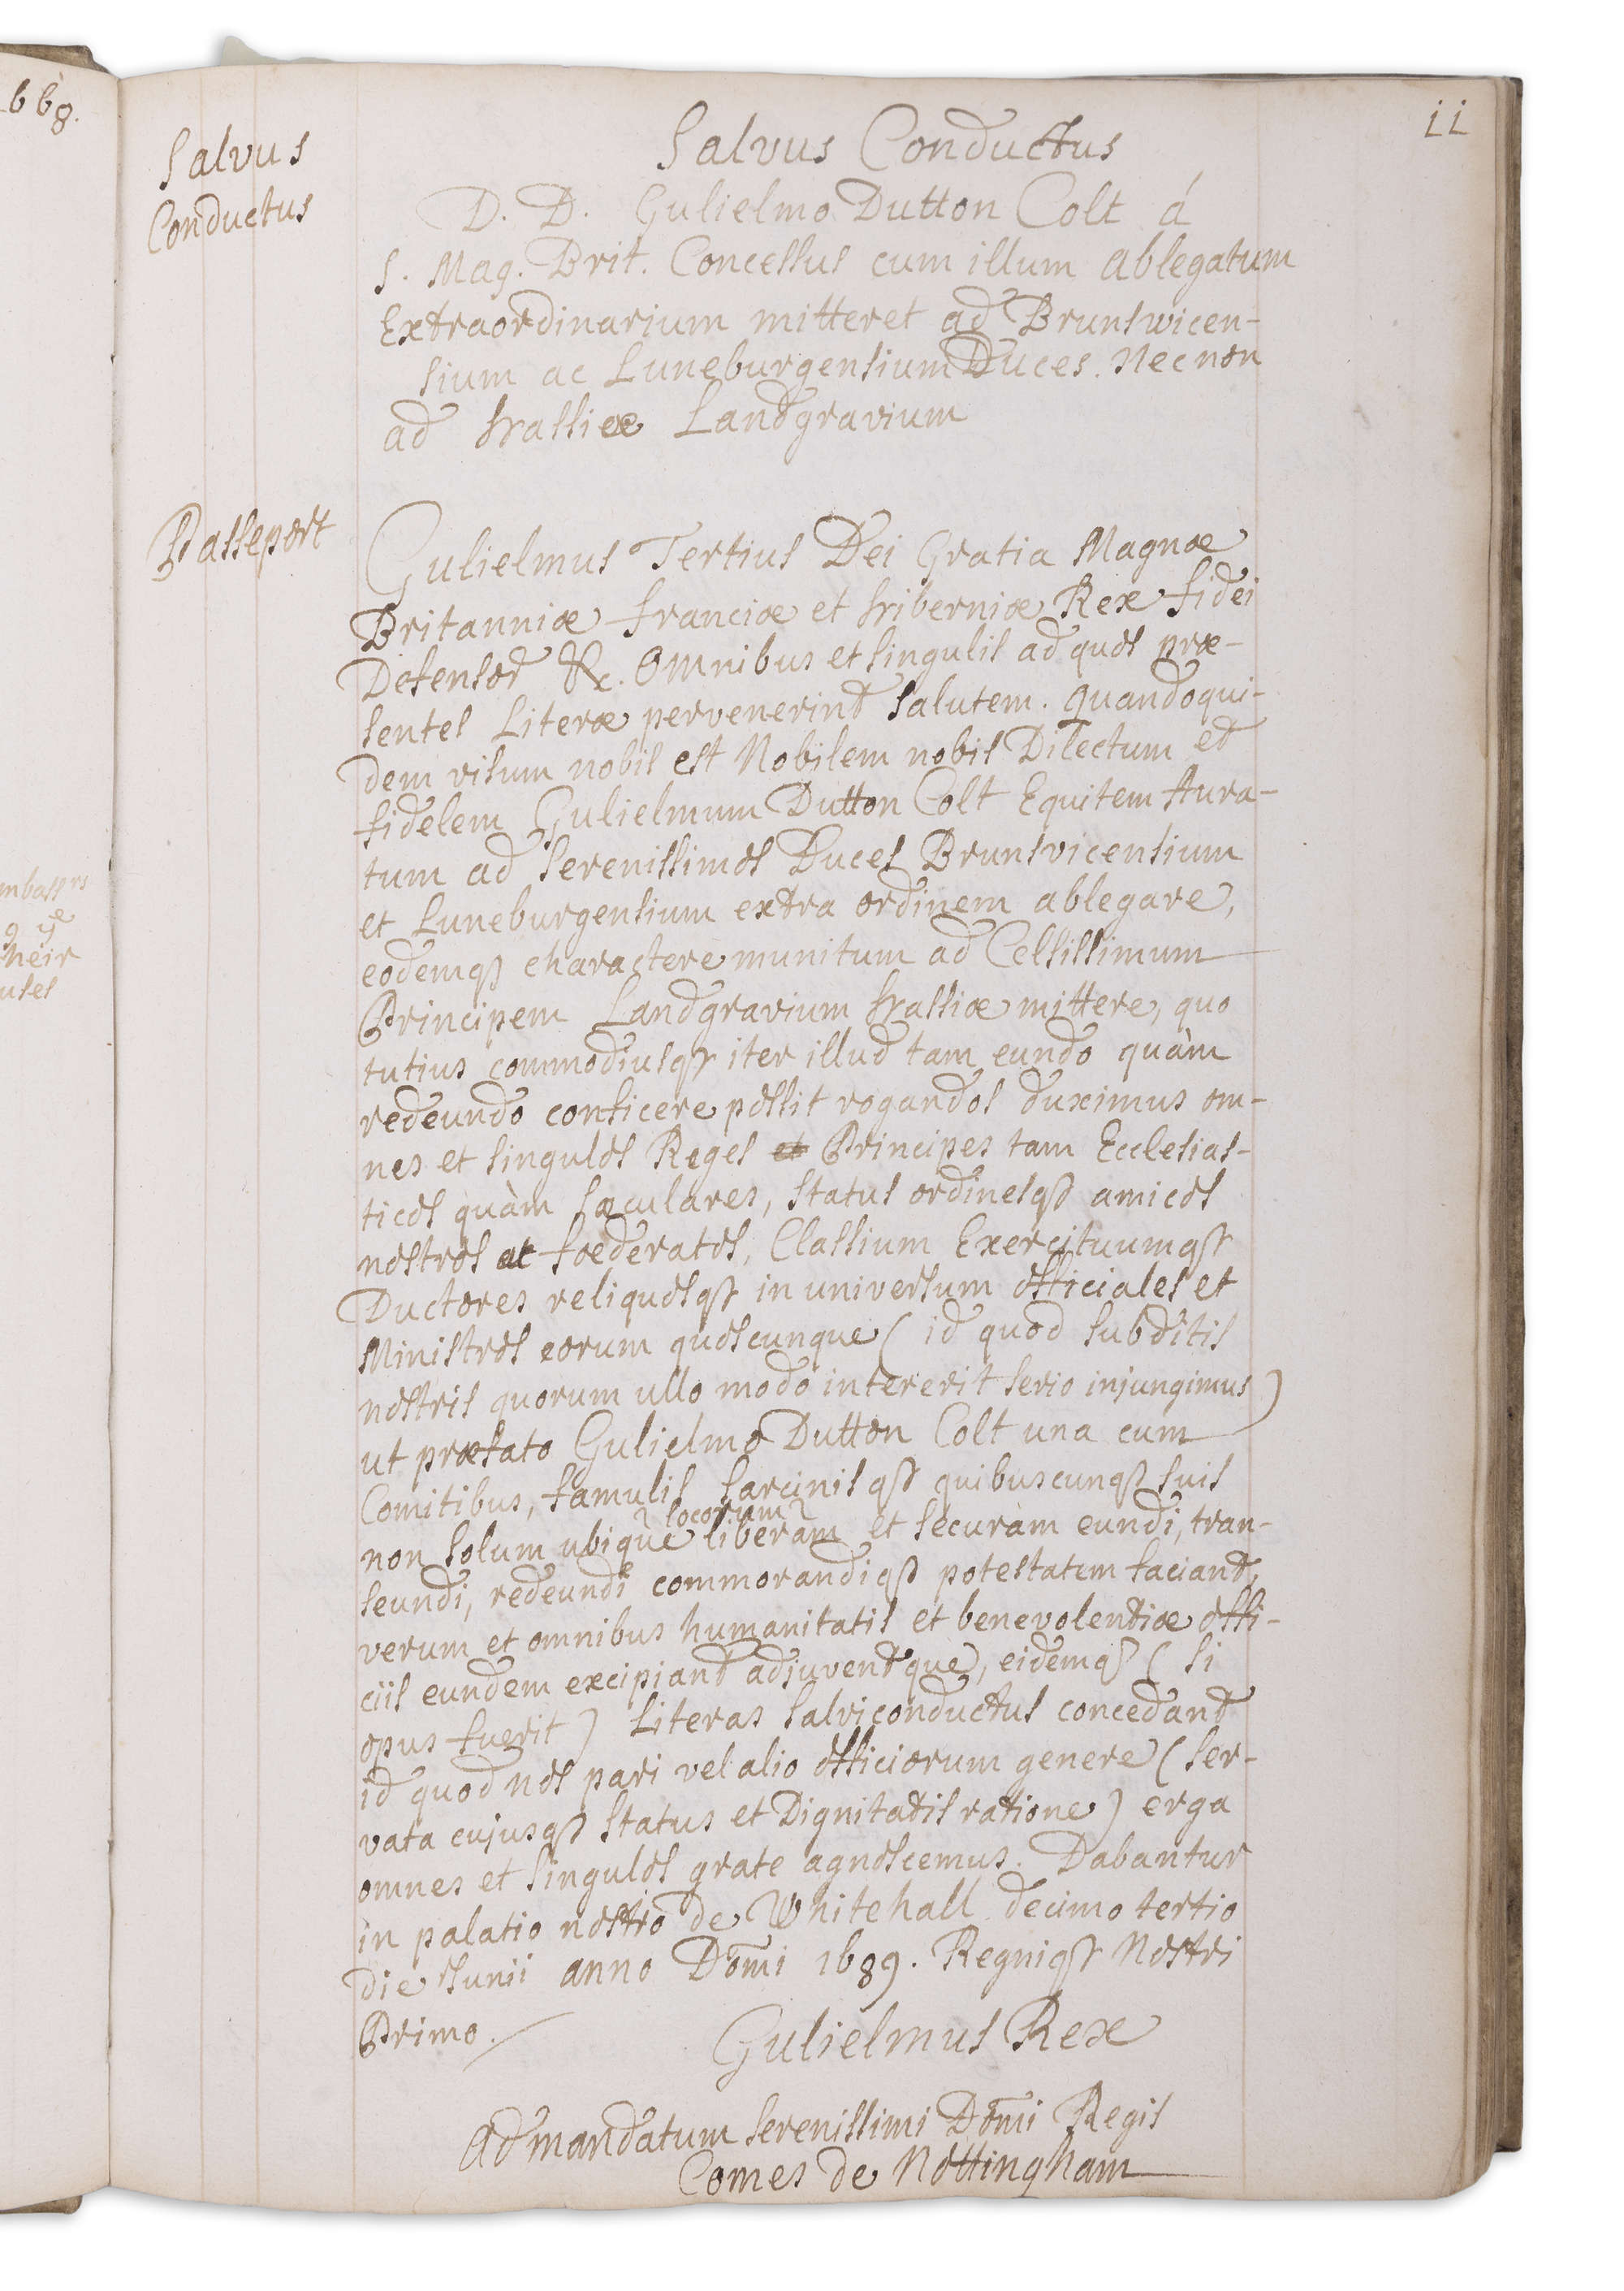 668.
mbassrs
g ye
heir
uses
11
Salvus
Conductus
Salvus Conductus
D. D. Gulielmo Dutton Colt á
S. Mag. Brit. Concessus cum illum ablegatum
Extraordinarium mitteret ad Brunswicen-
sium ac Luneburgensium Duces. Necnon
ad Hassiæ Landgravium
Passeport
Gulielmus Tertius Dei Gratia Magnæ
Britanniæ Franciæ et Hiberniæ Rex fidei
Defensor &c. Omnibus et singulis ad quos præ-
sentes Literæ pervenerint salutem. Quandoqui-
dem visum nobis est Nobilem nobis Dilectum et
fidelem Gulielmum Dutton Colt Equitem Aura-
tum ad Serenissimos Duces Brunsvicensium
et Luneburgensium extra ordinem ablegare,
eodemqȝ charactere munitum ad Celsissimum
Principem Landgravium Hassiæ mittere, quo
tutius commodiusqȝ iter illud tam eundo quàm
redeundo conficere possit rogandos duximus om-
nes et singulos Reges et Principes tam Ecclesias-
ticos quàm sæculares, status ordinesqȝ amicos
nostros ac fœderatos, Classium Exercituumqȝ
Ductores reliquosqȝ in universum officiales et
Ministros eorum quoscunque (id quod subditis
nostris quorum ullo modo intererit serio injungimus)
ut præfato Gulielmo Dutton Colt una cum
Comitibus, famulis sarcinisqȝ quibuscunqȝ suis
non solum ubique locorum liberam et securam eundi, tran-
seundi, redeundi commorandiqȝ potestatem faciant,
verum et omnibus humanitatis et benevolentiæ offi-
ciis eundem excipiant adjuventque, eidemqȝ (si
opus fuerit) Literas salvi conductus concedant
id quod nos pari vel alio officiorum genere (ser-
vata cujusqȝ status et Dignitatis ratione) erga
omnes et singulos grate agnoscemus. Dabantur
in palatio nostro de Whitehall decimo tertio
die Junii anno Dom̄i 1689. Regniqȝ Nostri
Primo.
Gulielmus Rex
Ad mandatum serenissimi Dom̄i Regis
Comes de Nottingham